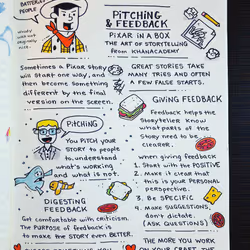 BATTERLEY
PEOPLE
PITCHING
& FEEDBACK
PIXAR IN A BOX
THE ART OF STORYTELLING
from KHANACADEMY
Sometimes a Pixar Story
will start one way, and
then become something
different by the final
version on the screen.
GREAT STORIES TAKE
MANY TRIES AND OFTEN
A FEW FALSE STARTS.
PITCHING
You PITCH your
STORY to people
to understand
what's working
and what is not.
GIVING FEEDBACK
Feedback helps the
Storyteller know
what parts of the
Story need to be
clearer.
when giving feedback
1. Start with the POSITIVE
2. Make it clear that
this is your PERSONAL
perspective.
3. BE SPECIFIC
4. MAKE SUGGESTIONS,
don't dictate.
(ASK QUESTIONS)
DIGESTING
FEEDBACK
Get comfortable with criticism.
The PURPOSE of feedback is
to MAKE the STORY EVEN BETTER.
THE MORE YOU WORK